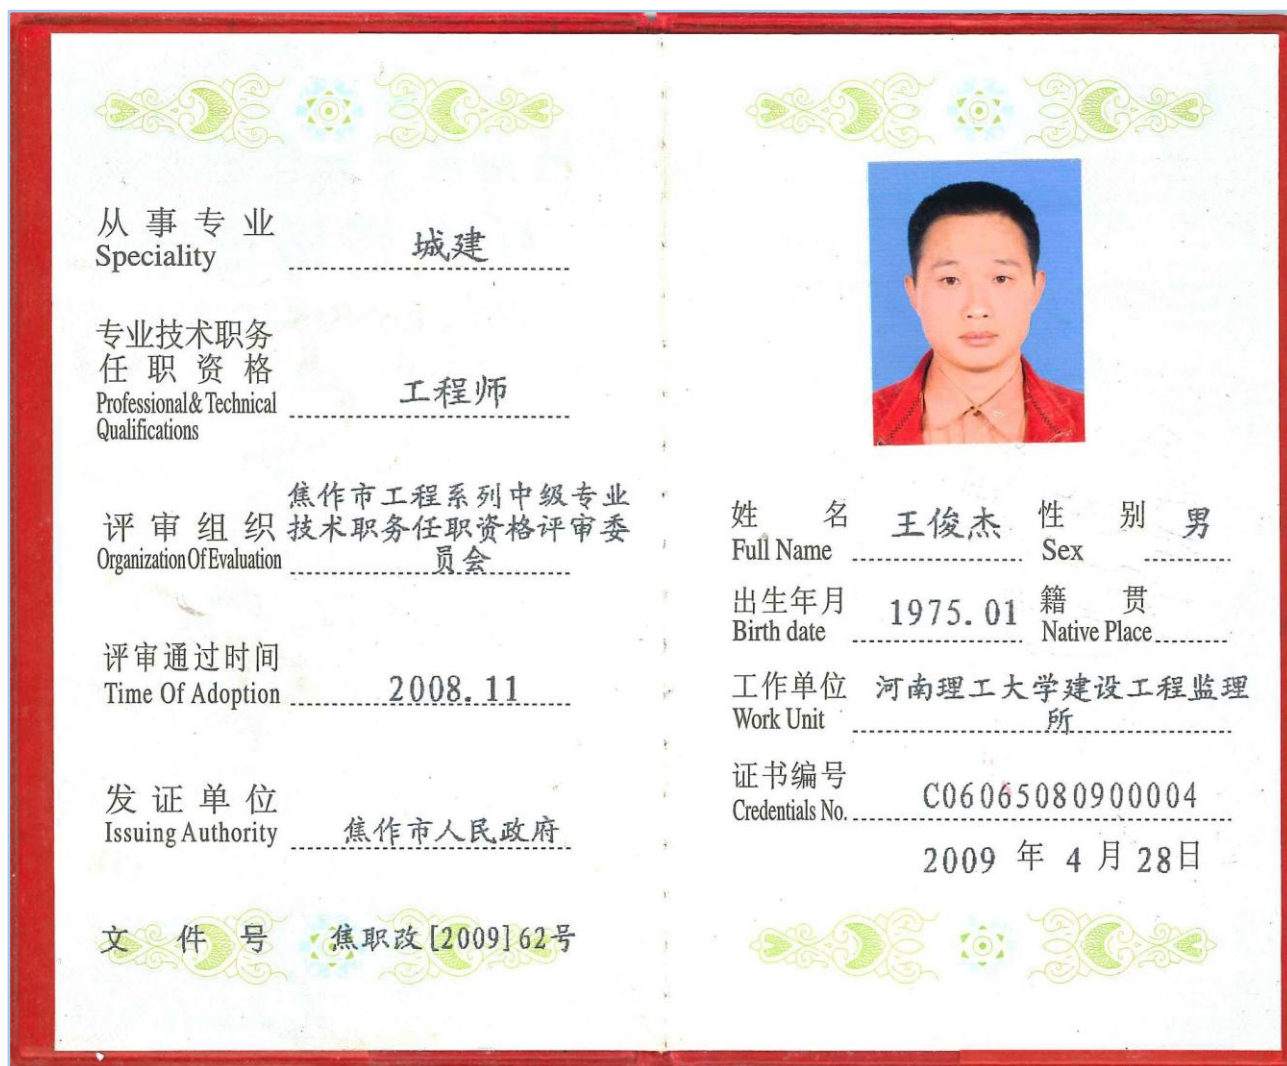 从事专业
Speciality
城建
专业技术职务
任职资格
Professional&Technical
Qualifications
工程师
评审组织
Organization Of Evaluation
焦作市工程系列中级专业
技术职务任职资格评审委
员会
评审通过时间
Time Of Adoption
2008.11
发证单位
Issuing Authority
焦作市人民政府
文件号 焦职改[2009]62号
姓名 王俊杰 性别 男
Full Name Sex
出生年月 1975.01 籍贯
Birth date Native Place
工作单位 河南理工大学建设工程监理
Work Unit 所
证书编号
Credentials No. C06065080900004
2009 年 4 月 28日